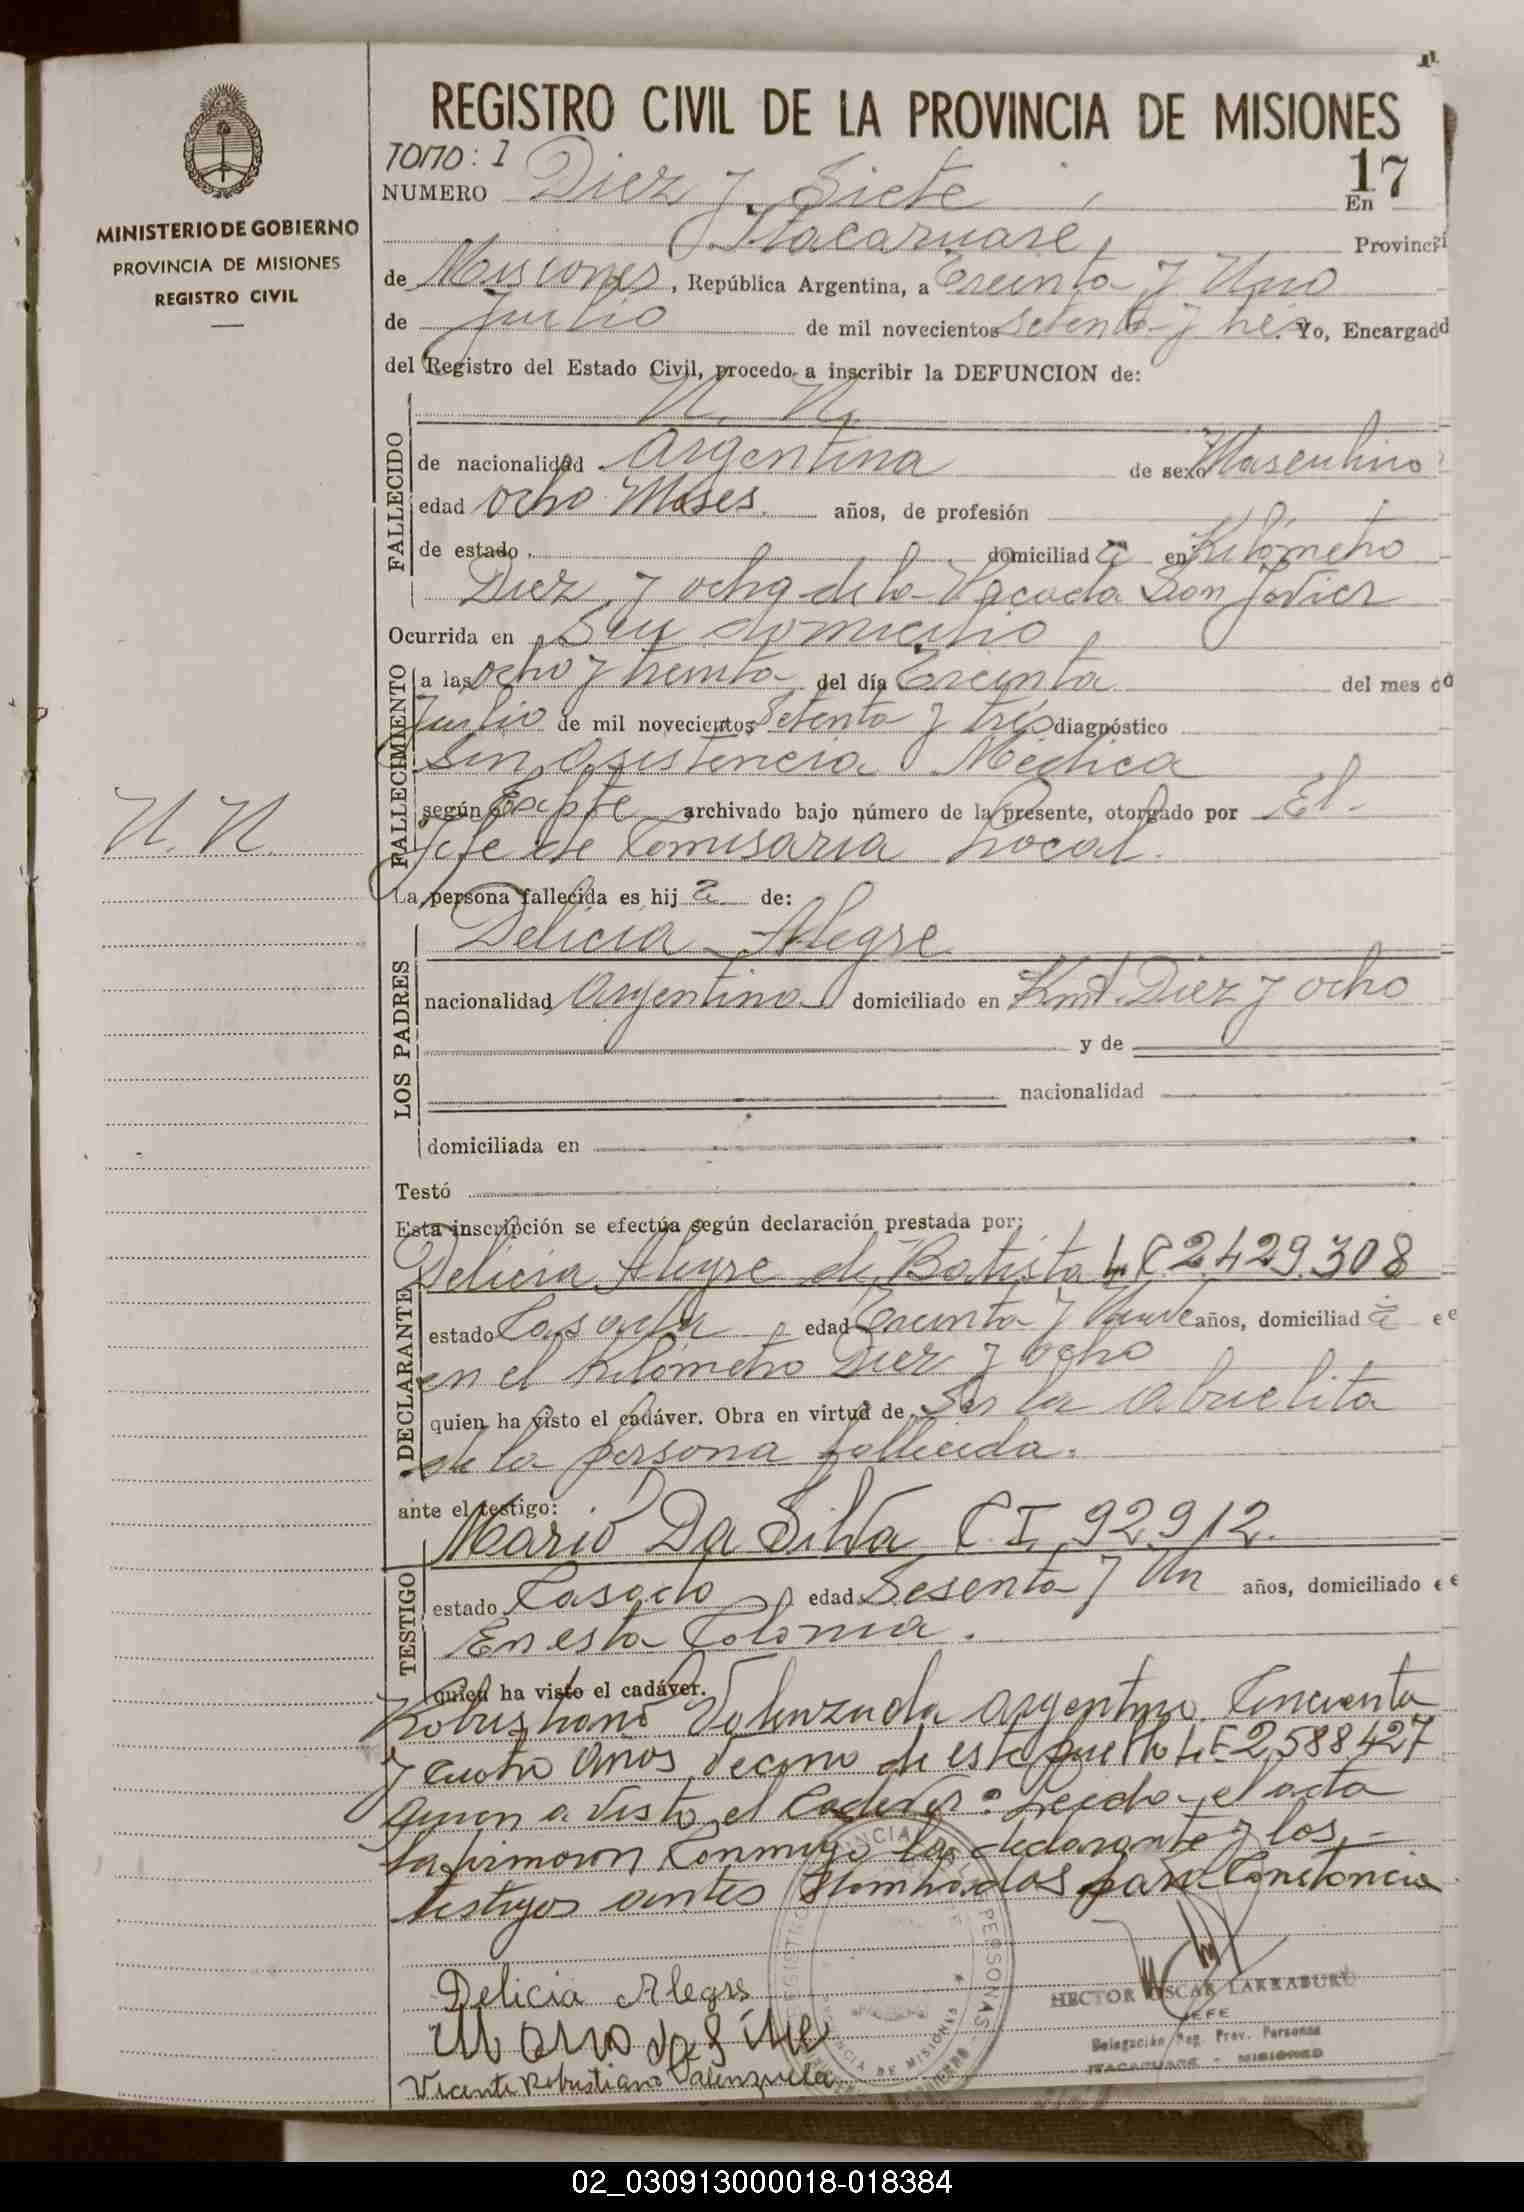 MINISTERIO DE GOBIERNO
PROVINCIA DE MISIONES
REGISTRO CIVIL
N. N.
REGISTRO CIVIL DE LA PROVINCIA DE MISIONES
TOMO: I
NUMERO Diez y Siete 17 En
Itacaruaré, Provinci
de Misiones, República Argentina, a Treinta y Uno
de Julio de mil novecientos Setenta y tres. Yo, Encargad
del Registro del Estado Civil, procedo a inscribir la DEFUNCION de:
FALLECIDO
N. N.
de nacionalidad Argentina de sexo Masculino
edad ocho Meses. años, de profesión
de estado domiciliad a en Kilómetro
Diez y ocho de la Picada San Javier
Ocurrida en Su domicilio
FALLECIMIENTO
a las ocho y treinta del día Treinta del mes
Julio de mil novecientos Setenta y tres diagnóstico
Sin asistencia Médica
según archivado bajo número de la presente, otorgado por El
Jefe de Comisaria Local.
La persona fallecida es hij a de:
LOS PADRES
Delicia Alegre
nacionalidad Argentina domiciliado en Kmt. Diez y ocho
y de
nacionalidad
domiciliada en
Testó
Esta inscripción se efectúa según declaración prestada por:
DECLARANTE
Delicia Alegre de Batista L.C. 2.429.308
estado Casada edad Treinta y Nueve años, domiciliad a
en el Kilómetro Diez y ocho
quien ha visto el cadáver. Obra en virtud de Ser la abuelita
de la persona fallecida.
ante el testigo:
TESTIGO
Mario Da Silva C.I. 92912.
estado Casado edad Sesenta y Un años, domiciliado
En esta Colonia.
quien ha visto el cadáver.
Robustiano Valenzuela argentino. Cincuenta
y Cuatro años vecino de este pueblo L.E 2,588427
quien a visto el Cadáver: Leida el acta
la firmaron Conmigo la declarante y los
testigos antes Nombrados para Constancia
Delicia Alegre
Mario da Silve
Vicente Robustiano Valenzuela
HECTOR OSCAR LARRABURU
JEFE
Delegación Reg. Prov. Personas
ITACARUARE - MISIONES
02_030913000018-018384